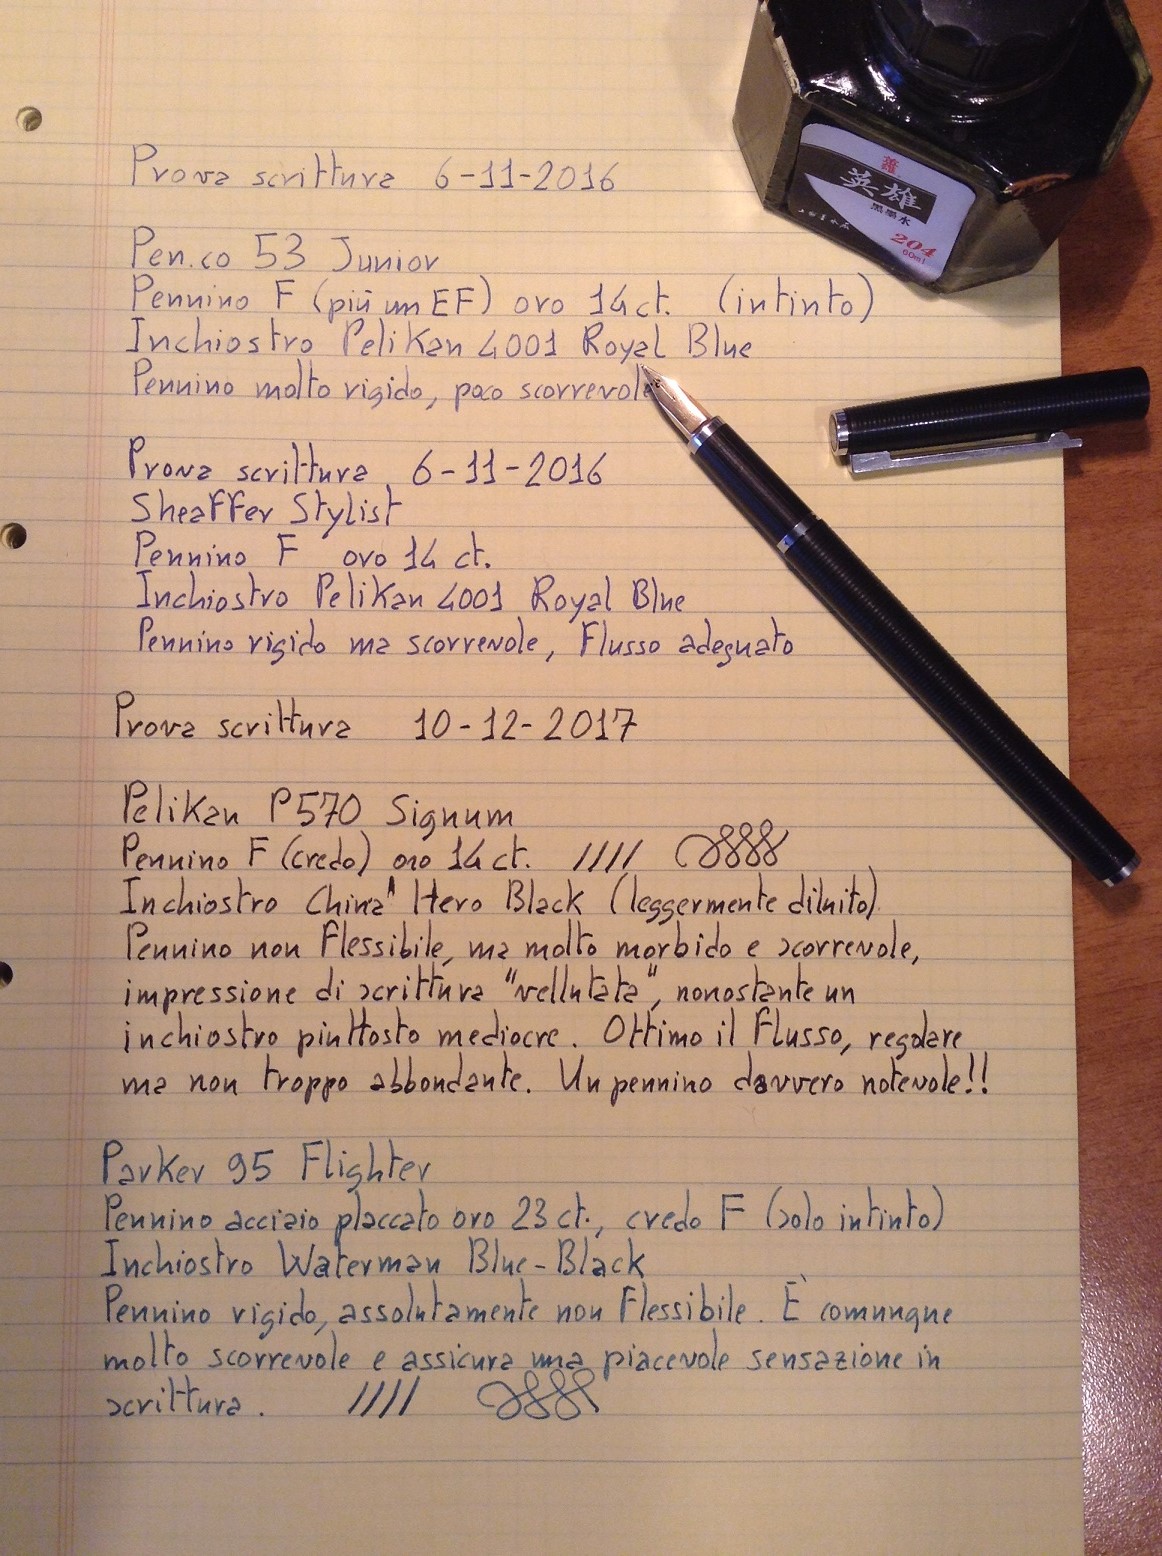 Prova scrittura 6-11-2016
Pen.co 53 Junior
Pennino F (più un EF) oro 14 ct. (intinto)
Inchiostro Pelikan 4001 Royal Blue
Pennino molto rigido, poco scorrevole
Prova scrittura 6-11-2016
Sheaffer Stylist
Pennino F oro 14 ct.
Inchiostro Pelikan 4001 Royal Blue
Pennino rigido ma scorrevole, flusso adeguato
Prova scrittura 10-12-2017
Pelikan P570 Signum
Pennino F (credo) oro 14 ct.
Inchiostro China Hero Black (leggermente diluito)
Pennino non flessibile, ma molto morbido e scorrevole,
impressione di scrittura "vellutata", nonostante un
inchiostro piuttosto mediocre. Ottimo il flusso, regolare
ma non troppo abbondante. Un pennino davvero notevole!!
Parker 95 Flighter
Pennino acciaio placcato oro 23 ct., credo F (solo intinto)
Inchiostro Waterman Blue-Black
Pennino rigido, assolutamente non flessibile. È comunque
molto scorrevole e assicura una piacevole sensazione in
scrittura.
英雄
黑墨水
204
60ml